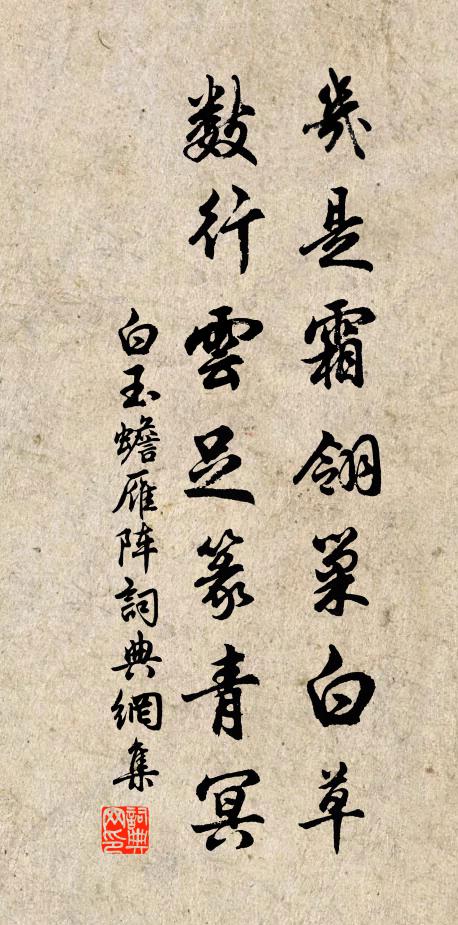 幾是霜翎巢白草
數行雲足篆青冥
白玉蟾雁阵詞典網集
詞典
网印